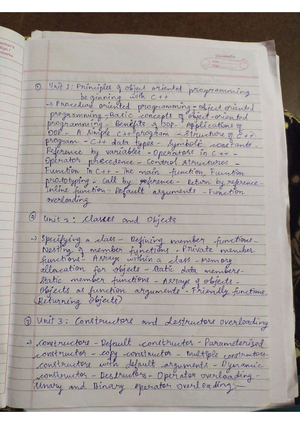 Unit 1: Principles of object oriented programming
beginning with C++
→ Procedure oriented programming - object oriented
programming - basic concepts of object-oriented
programming - Benefits of OOP - Applications of
OOP - A simple C++ program - structure of C++
program - C++ data types - Symbolic constants -
Reference by variables - Operators in C++ -
Operator precedence - Control structures -
Function in C++ - the main function, Function
prototyping - call by reference - Return by reference -
Inline function - Default arguments - Function
overloading
Unit 2: Classes and Objects
→ Specifying a class - Defining member functions -
Nesting of member functions - Private member
functions - Arrays within a class - Memory
allocation for objects - Static data members -
Static member functions - Arrays of objects -
Objects as function arguments - Friendly functions
Returning objects)
Unit 3: Constructors and destructors overloading
→ Constructors - Default constructor - Parameterised
constructor - copy constructor - Multiple constructors
constructors with default arguments - Dynamic
constructor - Destructors - Operator overloading -
Unary and Binary operator overloading -